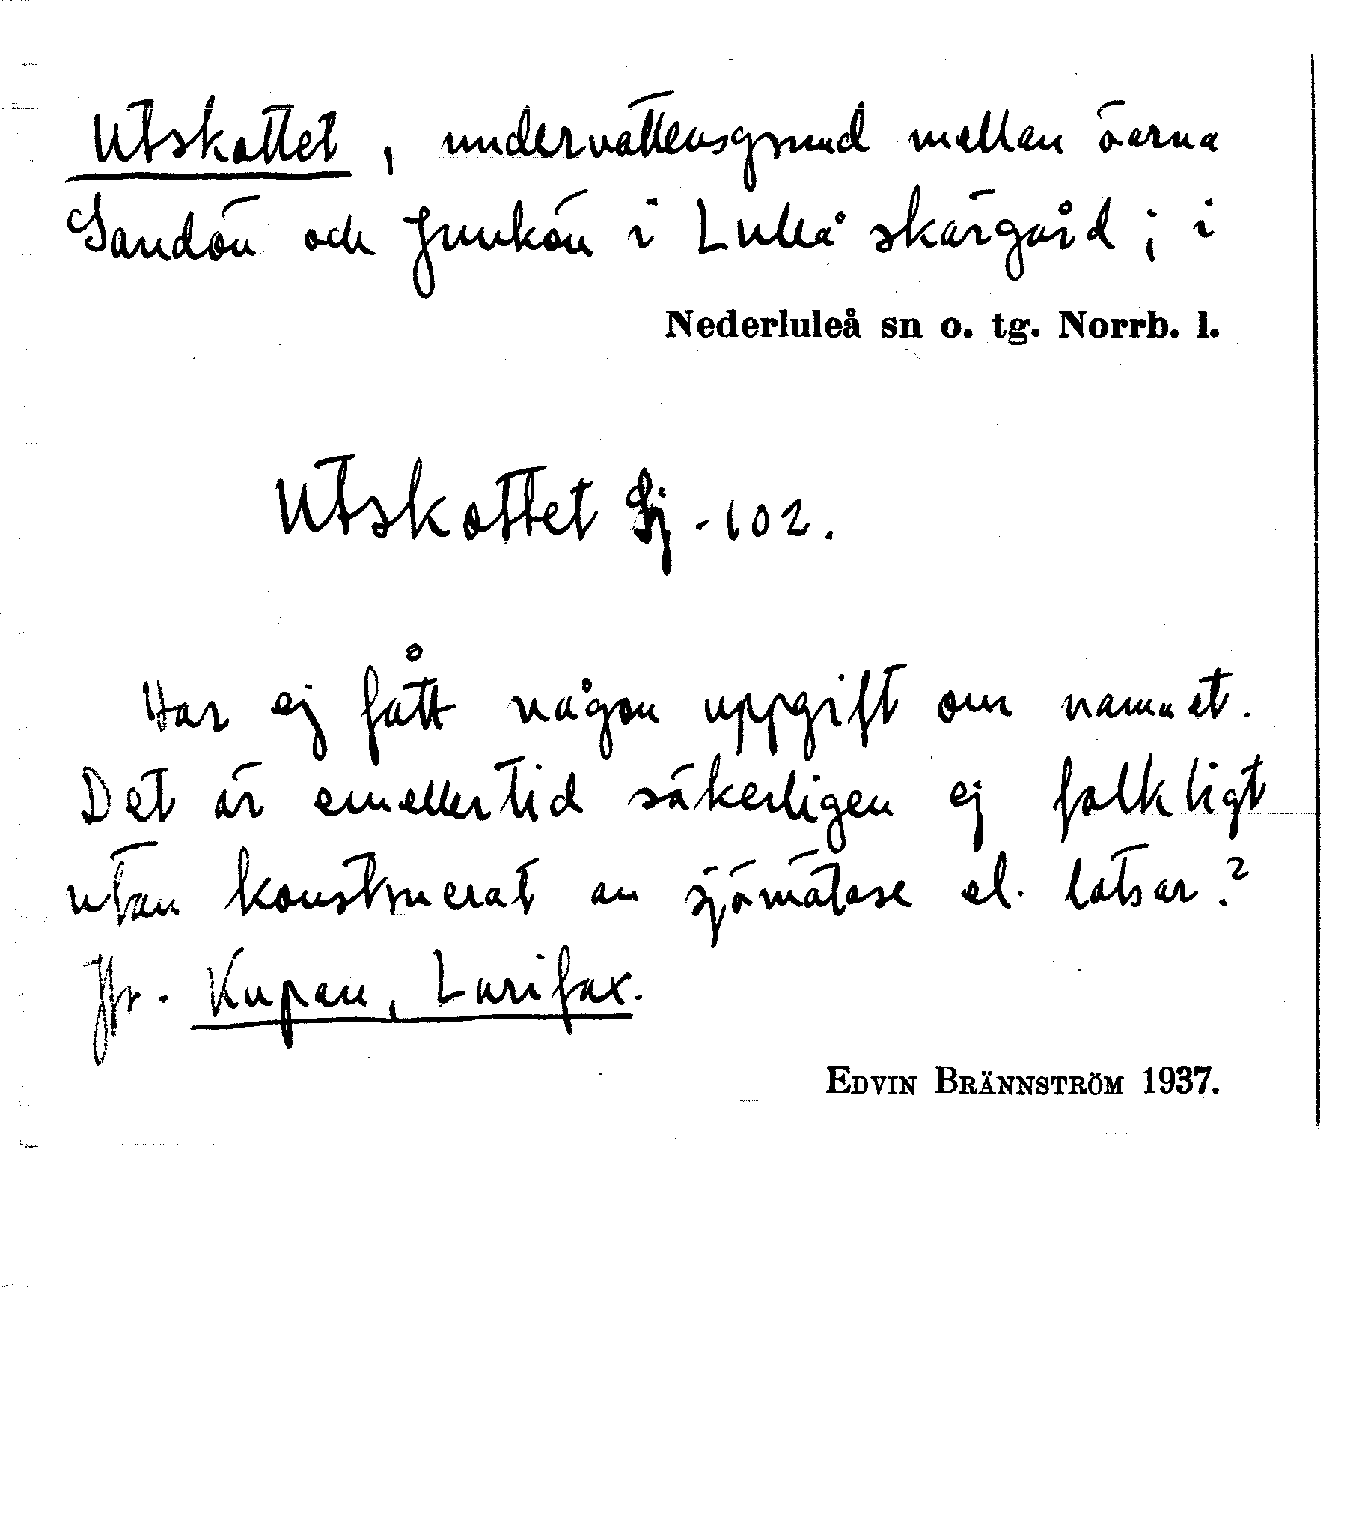 Utskottet, undervattensgrund mellan öarna
Sandön och Junkön i Luleå skärgård; i
Nederluleå sn o. tg. Norrb. l.
Utskottet Sj-102.
Har ej fått någon uppgift om namnet.
Det är emellertid säkerligen ej folkligt
utan konstruerat av sjömätare el. lotsar?
Jfr. Kupan, Lurifax.
EDVIN BRÄNNSTRÖM 1937.